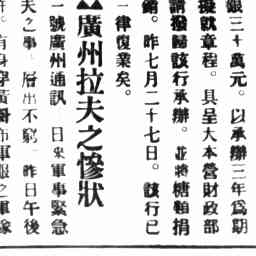 銀三十萬元。以承辦三年爲期
擬就章程。具呈大本營財政部
請撥歸該行承辦。並將糖類捐
銷。昨七月二十七日。該行已
一律復業矣。
廣州拉夫之慘狀
一號廣州通訊 日來軍事緊急
夫之事。層出不窮。昨日午後
有身穿黃布軍服之軍隊